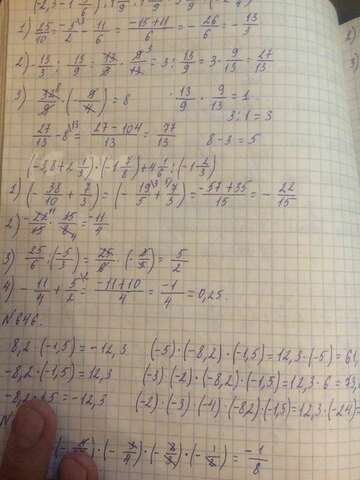 1) 25/10 = -5/2 - 11/6 = -15+11/6 = -26/6 = -13/3
2) -13/3 : 13/9 = 13/3 · 9/13 = 3 : 13/9 = 3 · 9/13 = 27/13
3) 32/9 · (-9/4) = 8 · 13/9 · 9/13 = 1.
3:1=3
27/13 - 8 = 27-104/13 = 77/13
8-3=5
(-3,8+2 1/3) · (-1 7/8) + 4 1/6 : (-1 2/3)
1) (-38/10 + 7/3) = (-19/5 + 7/3) = -57+35/15 = -22/15
2) -22/15 · 15/8 = -11/4
3) 25/6 · (-5/3) = 25/6 · (-3/5) = 5/2
4) -11/4 + 5/2 = -11+10/4 = -1/4 = 0,25.
N 846.
8,2·(-1,5)=-12,3 (-5)·(-8,2)·(-1,5)=12,3·(-5)=61,
-8,2·(-1,5)=12,3 (-3)·(-2)·(-8,2)·(-1,5)=12,3·6=73,
-8,2·1,5=-12,3 (-2)·(-3)·(-4)·(-8,2)·(-1,5)=12,3·(-24)=
= -1/8